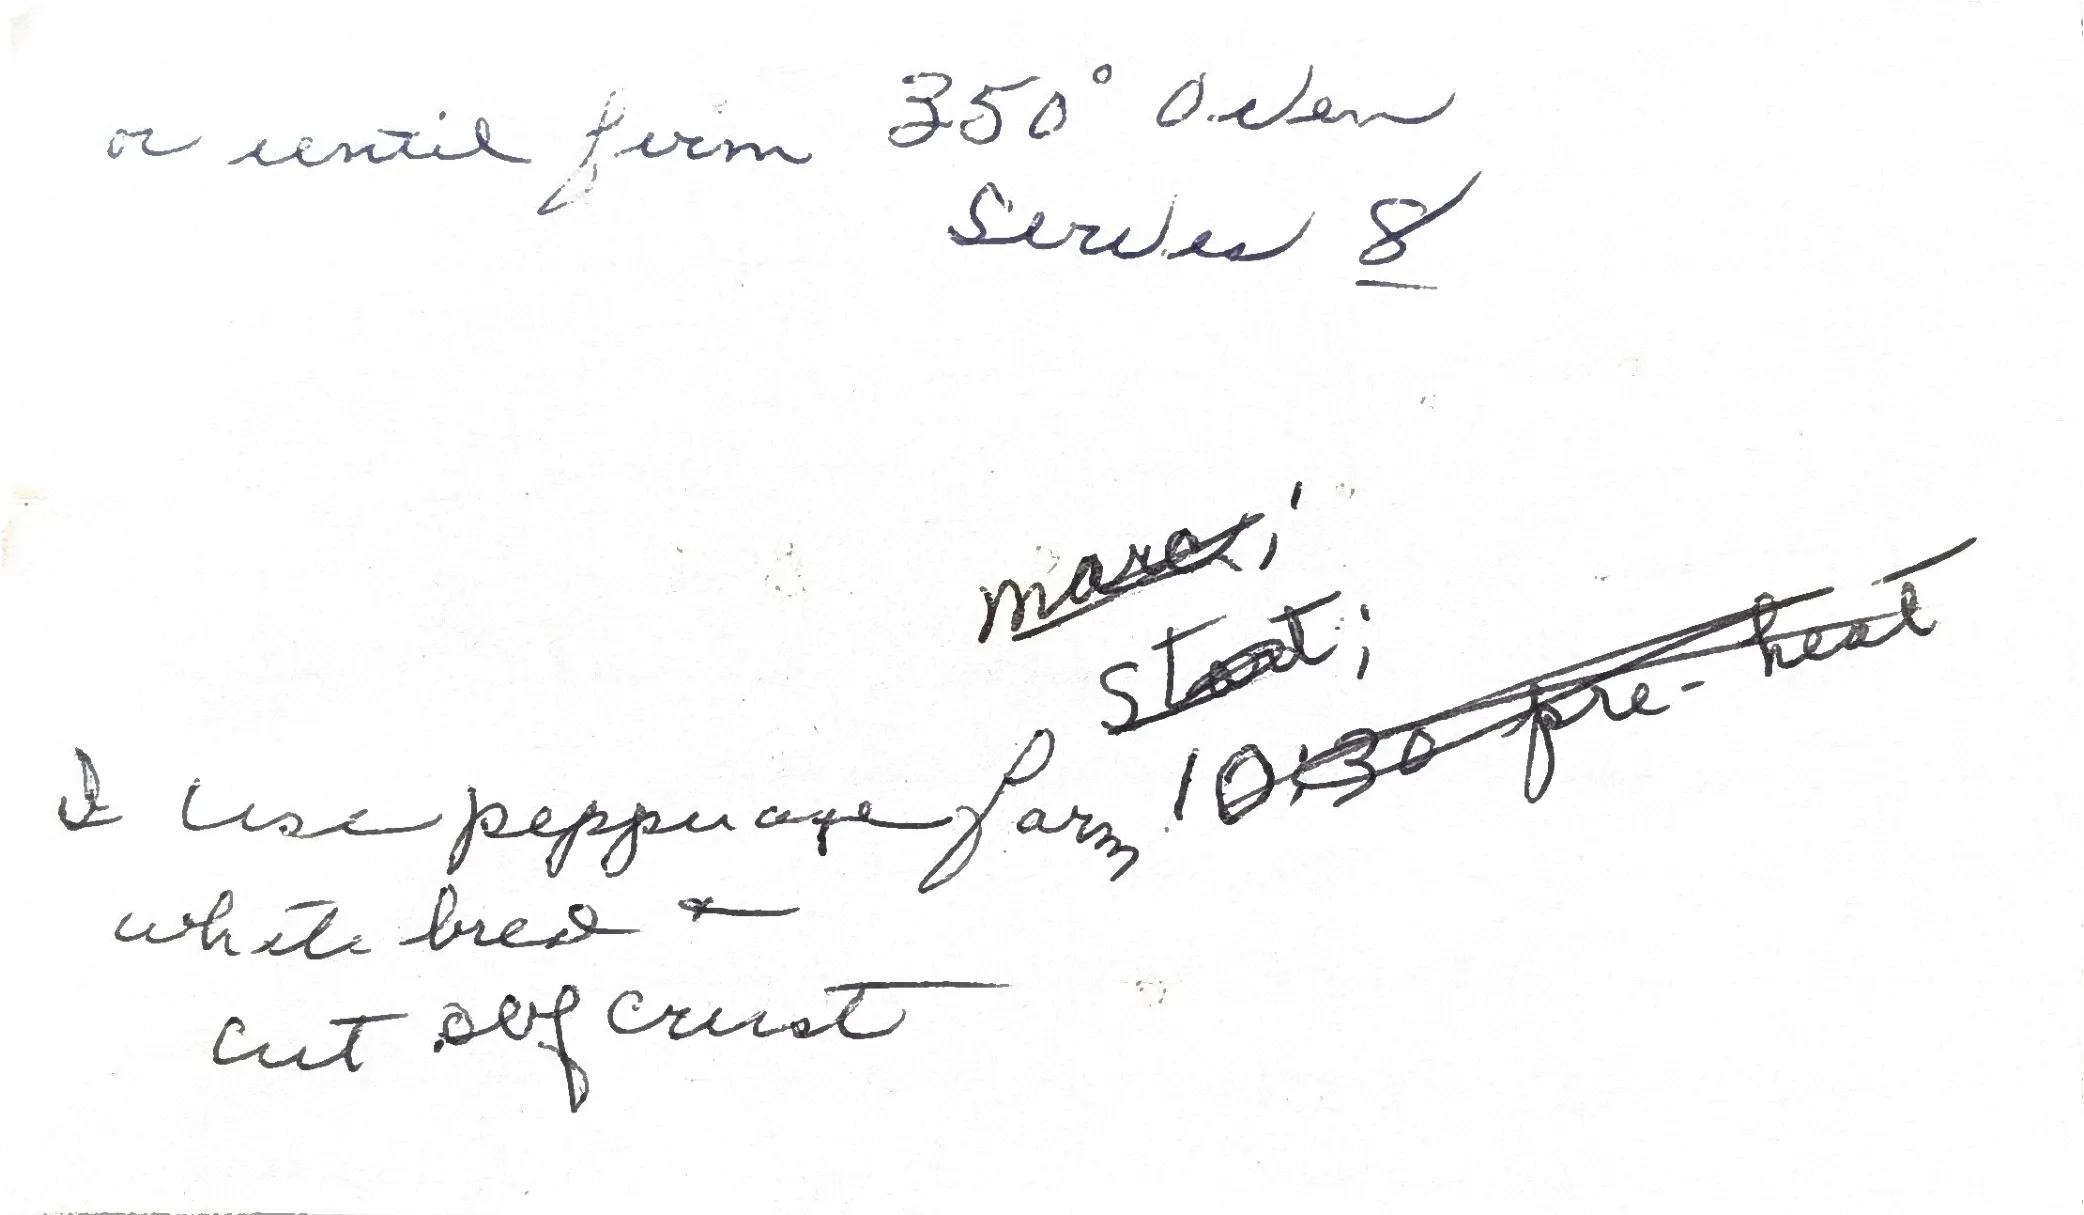 or until firm 350° Oven
Serves 8
Start;
10:30 pre-heat
I use pepperage farm
white bread -
cut off crust